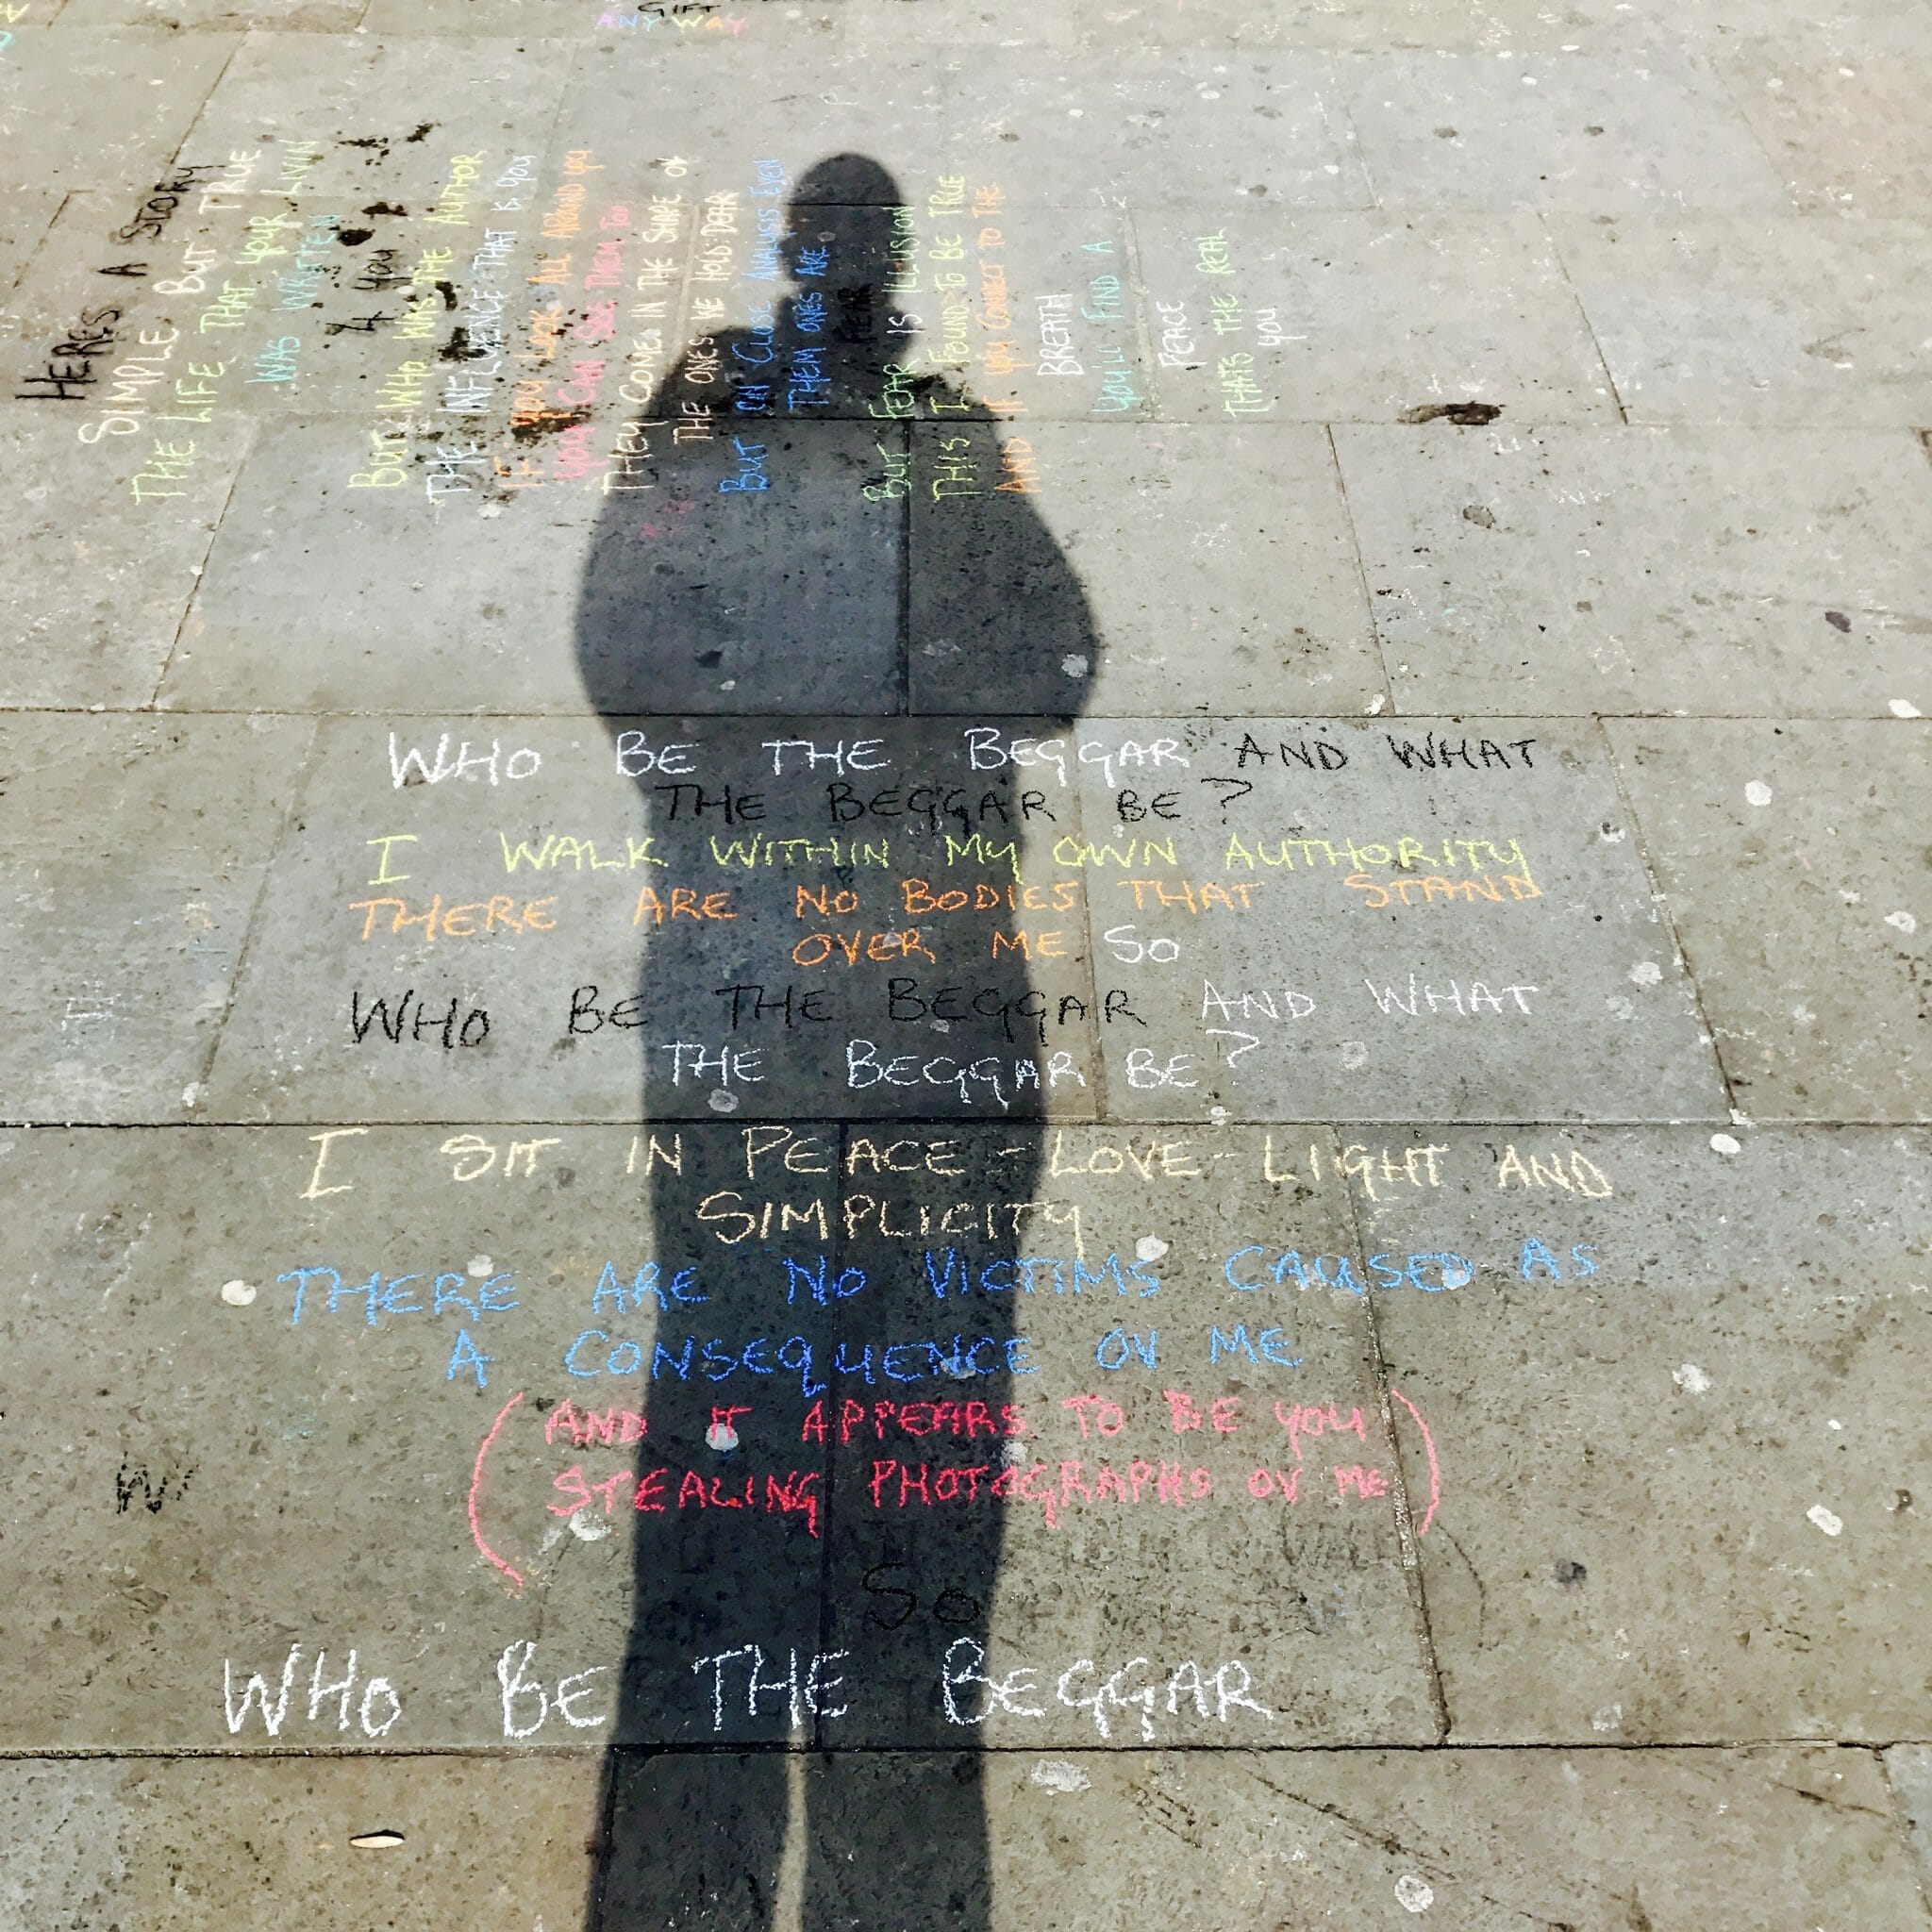 GIFT
ANY WAY
HERES A STORY
SIMPLE BUT TRUE
THE LIFE THAT YOUR LIVIN
WAS WRITTEN
4 YOU
BUT WHO WAS THE AUTHOR
THE INFLUENCE THAT IS YOU
IF YOU LOOK ALL AROUND YOU
YOU CAN SEE THEM TOO
THEY COMES IN THE SHAPE OV
THE ONES WE HOLD DEAR
BUT ON CLOSE ANALYSIS EVEN
THEM ONES ARE
FEAR
BUT FEAR IS ILLUSION
THIS I FOUND TO BE TRUE
AND IF YOU CONNECT TO THE
BREATH
YOU'LL FIND A
PEACE
THATS THE REAL
YOU
WHO BE THE BEGGAR AND WHAT
THE BEGGAR BE?
I WALK WITHIN MY OWN AUTHORITY
THERE ARE NO BODIES THAT STAND
OVER ME SO
WHO BE THE BEGGAR AND WHAT
THE BEGGAR BE?
I SIT IN PEACE - LOVE - LIGHT AND
SIMPLICITY
THERE ARE NO VICTIMS CAUSED AS
A CONSEQUENCE OV ME
(AND IT APPEARS TO BE YOU
STEALING PHOTOGRAPHS OV ME)
SO
WHO BE THE BEGGAR